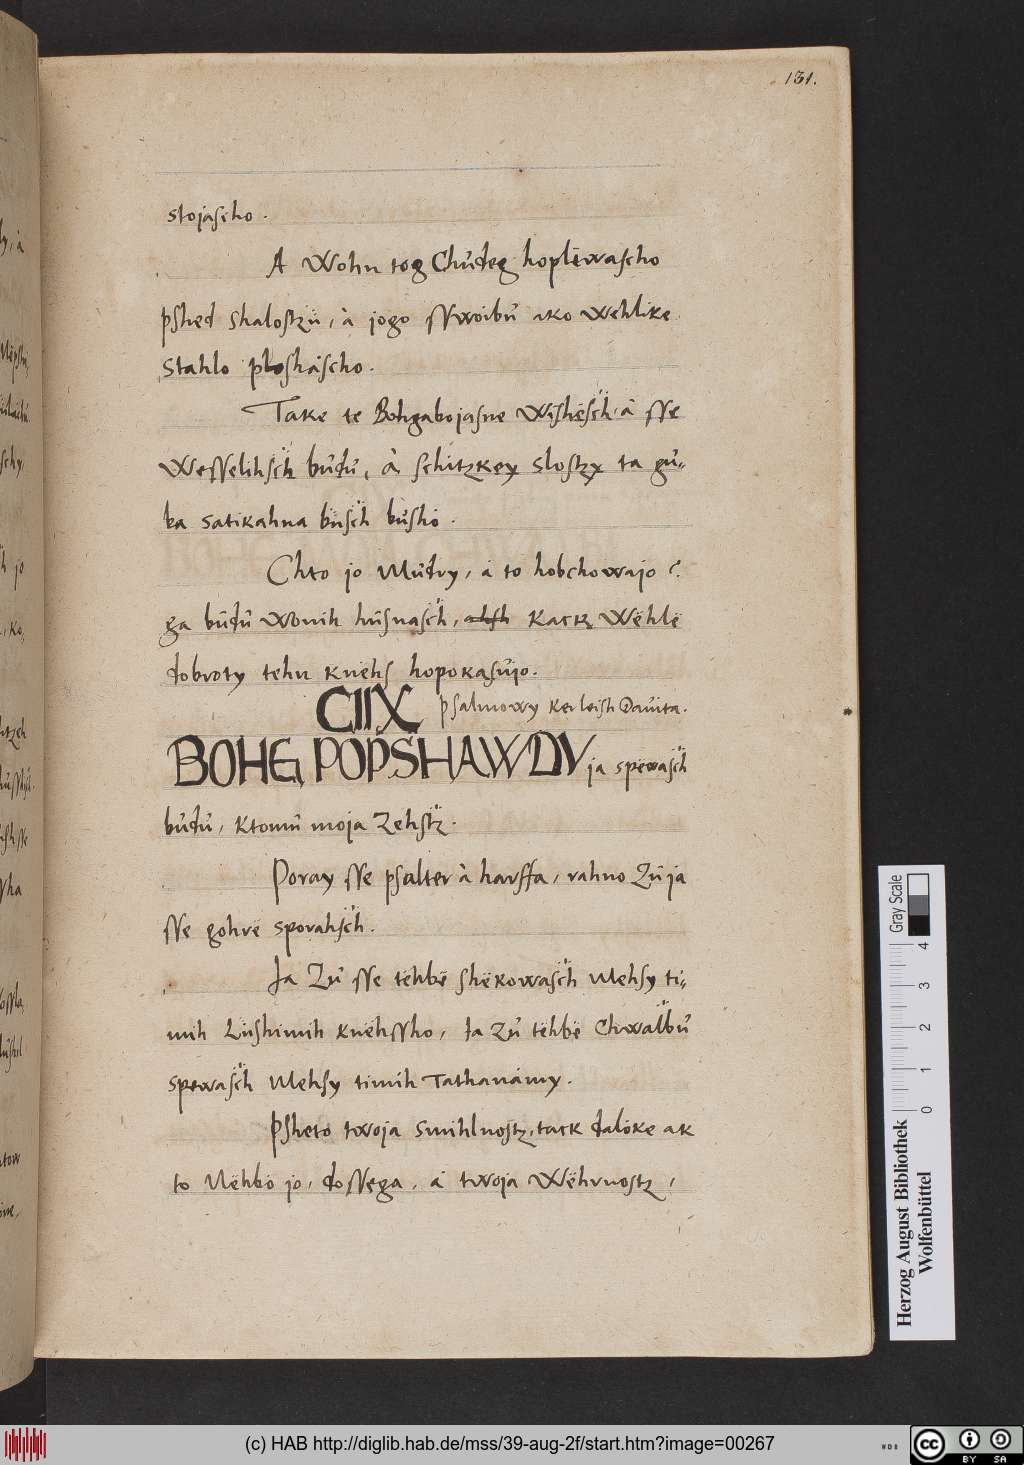 131.
stojascho.
A Wohn tog Chudeg hoplëwascho
pshed shalostzü, à jogo sswoibů ako Wehlike
stahlo ploshascho.
Take te Bohgabojasne Wishësch̋ à sse
Wesselihsch̋ budu, à, schitzkey slostzy ta gů„
ba satikahna büsch̋ bůsho.
Chto jo Můdry, à to hobchowajo?
ga budu Wonih hůsnasch̋, Kack Wëhlë
dobroty tehn knëhs hopokasůjo.
CIIX psalmowy Kerleish Dauita.
BOHG, POPSHAWDV ja spëwasch̋
budu, ktomů moja Zehstz̋.
Poray sse psalter à harffa, rahno Zů ja
sse gohrë sporahsch̋.
Ja Zů sse tëhbë shëkowasch̋ Mehsy ti„
mih Lüshimih knëhssho, Ja Zů tëhbë Chwalbů
spewasch̋ Mehsy timih Tathanámy.
Psheto twoja smihlnostz, tack daloke ak
to Nëhbo jo, dossega. à twoja Wëhrnostz,
Gray Scale
0 1 2 3 4
Herzog August Bibliothek
Wolfenbüttel
(c) HAB http://diglib.hab.de/mss/39-aug-2f/start.htm?image=00267
WDB
cc BY SA